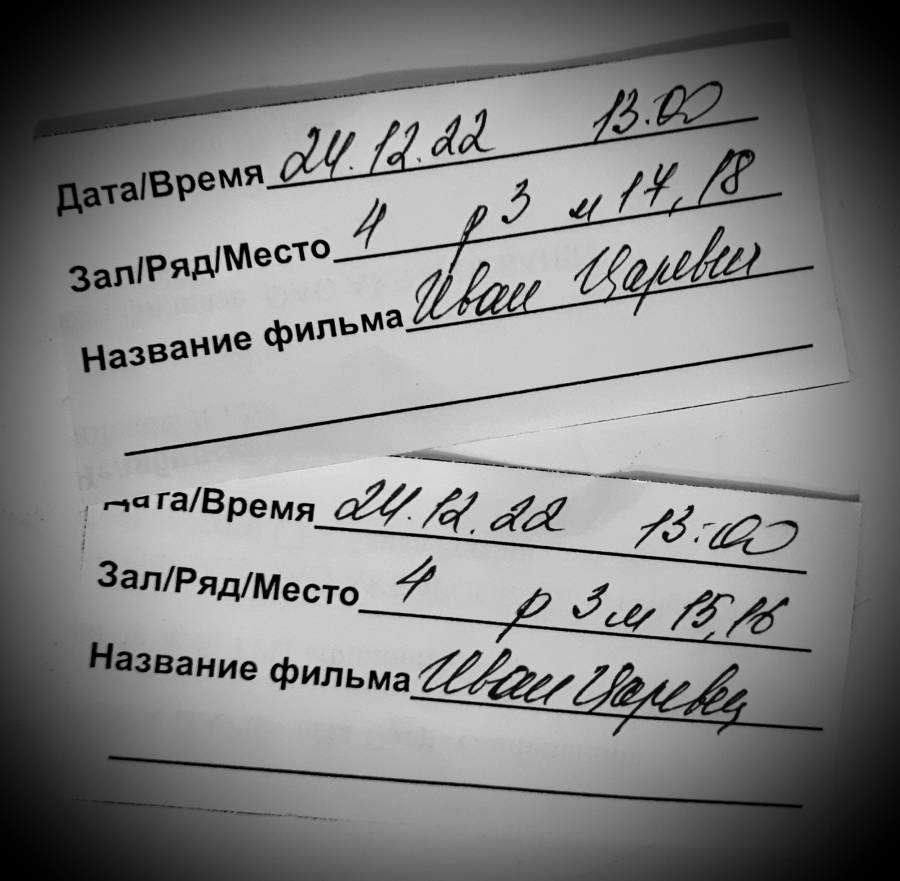 Дата/Время 24.12.22 13.00
Зал/Ряд/Место 4 р 3 м 17, 18
Название фильма Иван Царевич
Дата/Время 24.12.22 13:00
Зал/Ряд/Место 4 р 3 м 15, 16
Название фильма Иван Царевич